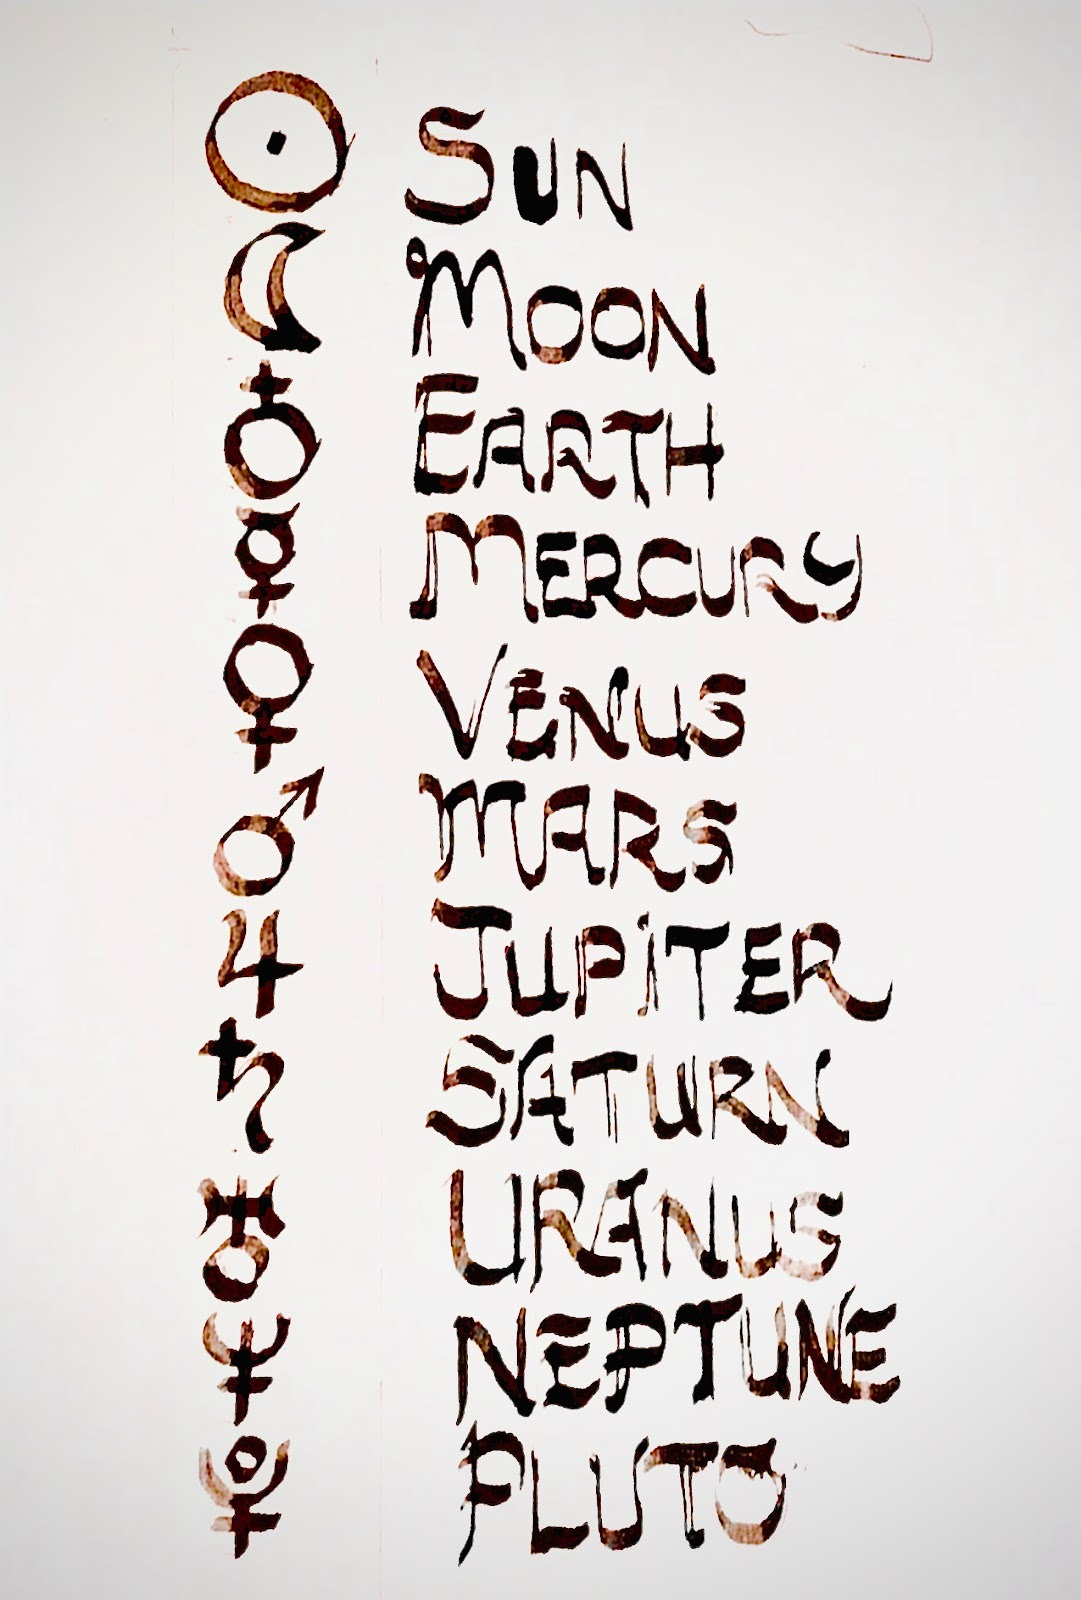 ☉ Sun
☾ Moon
♁ Earth
☿ Mercury
♀ Venus
♂ Mars
♃ Jupiter
♄ Saturn
♅ Uranus
♆ Neptune
⯓ Pluto